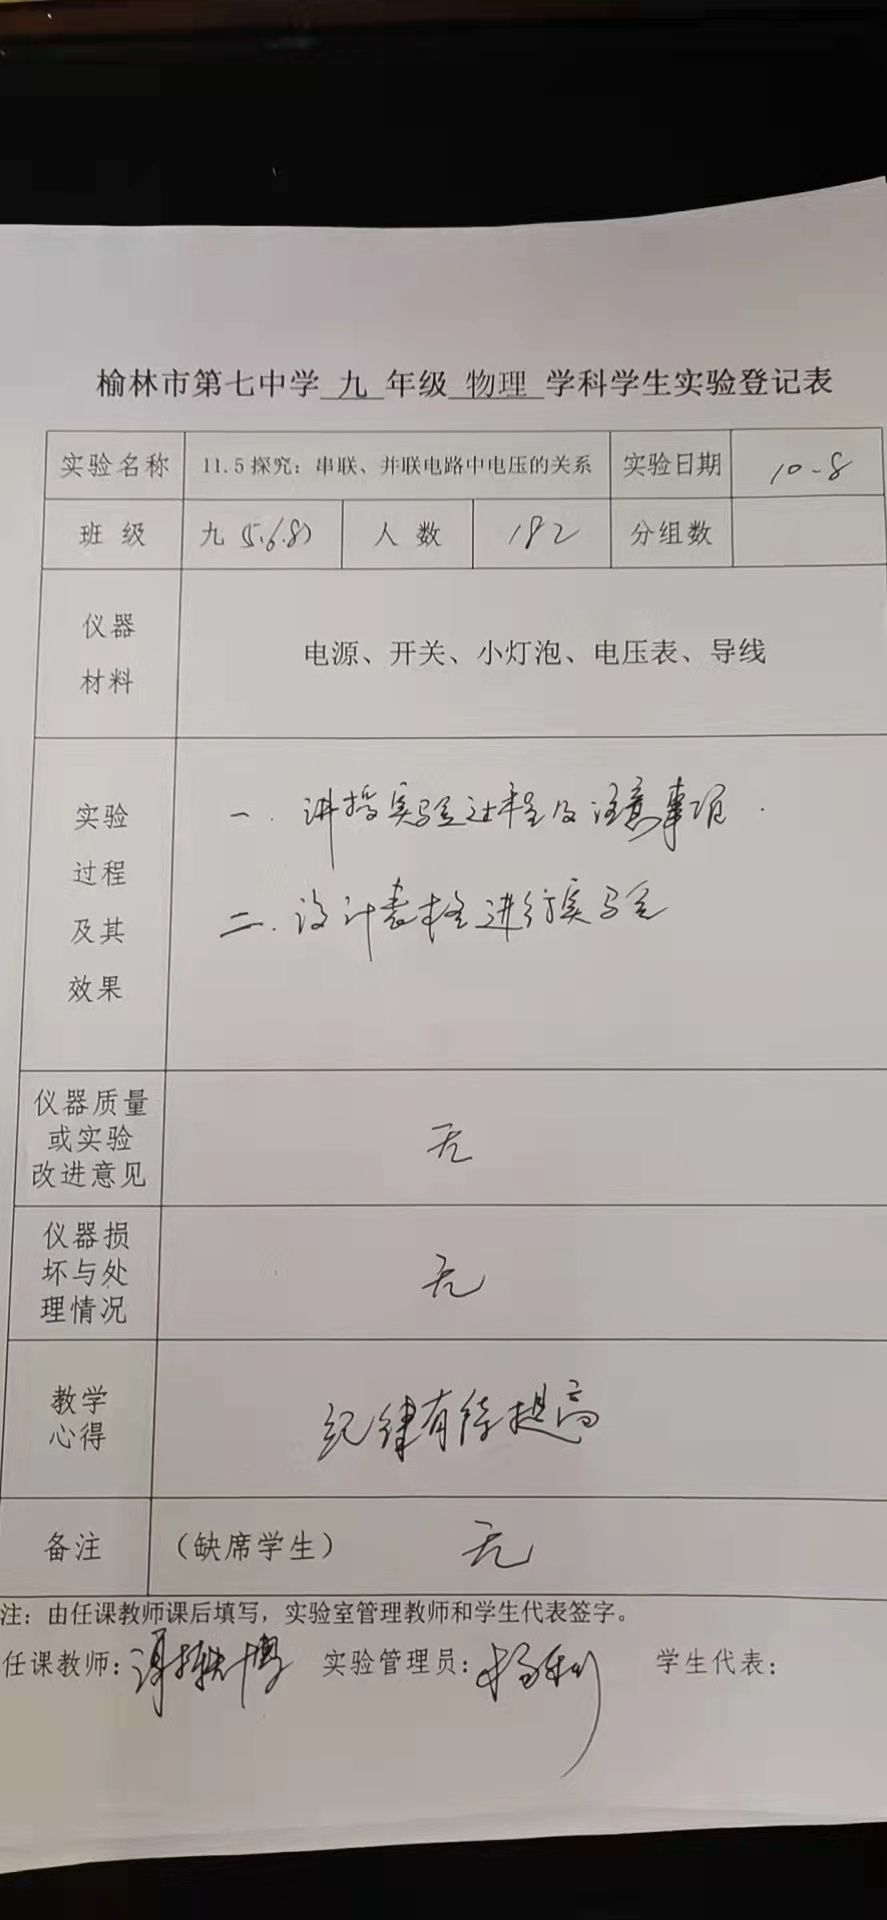 榆林市第七中学 九 年级 物理 学科学生实验登记表
实验名称 11.5探究：串联、并联电路中电压的关系 实验日期 10-8
班 级 九（5.6.8） 人 数 182 分组数
仪器
材料
电源、开关、小灯泡、电压表、导线
实验
过程
及其
效果
一．讲授实验过程及注意事项．
二．设计表格进行实验
仪器质量
或实验
改进意见
无
仪器损
坏与处
理情况
无
教学
心得
纪律有待提高
备注 （缺席学生） 无
注：由任课教师课后填写，实验室管理教师和学生代表签字。
任课教师： 实验管理员： 学生代表：